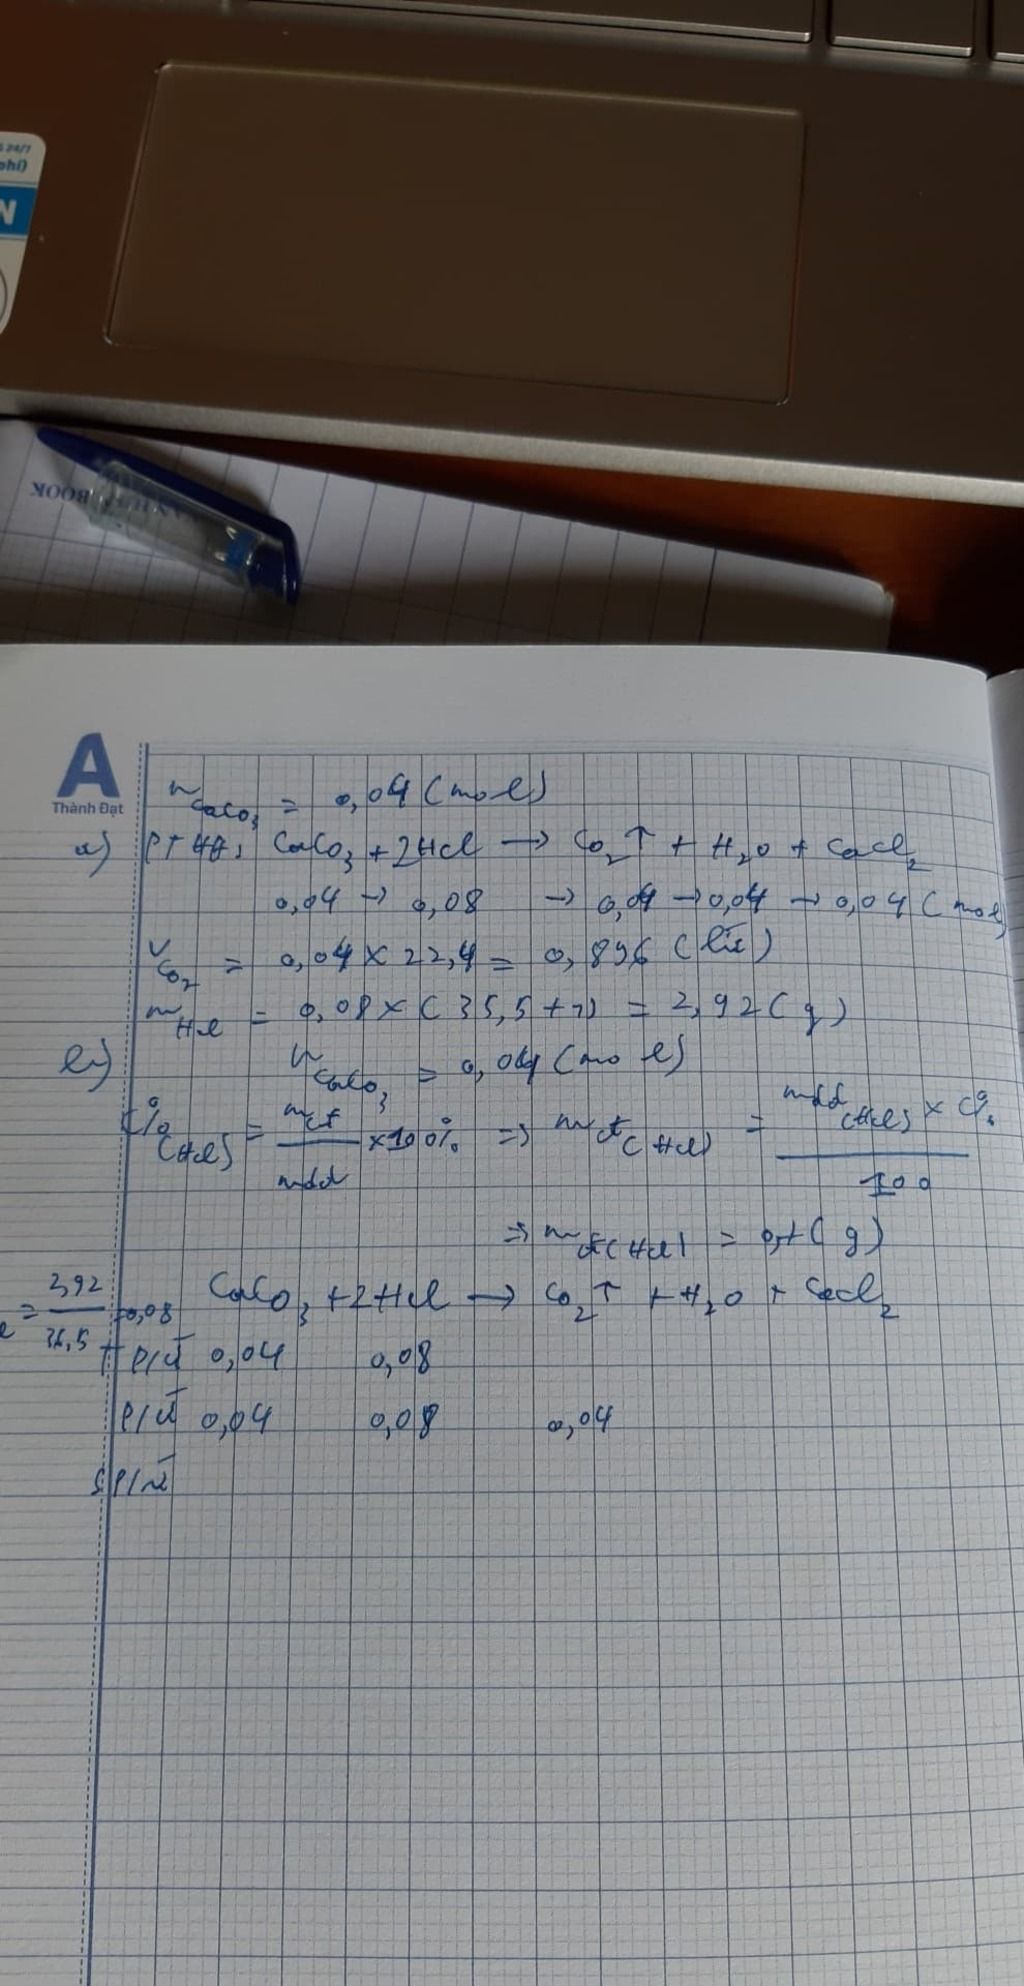 24/7
phí)
N
BOOK
A
Thành Đạt
n CaCO3 = 0,04 (mol)
a) PTHH: CaCO3 + 2HCl → CO2↑ + H2O + CaCl2
0,04 → 0,08 → 0,04 → 0,04 → 0,04 (mol)
V CO2 = 0,04 × 22,4 = 0,896 (lít)
m HCl = 0,08 × (35,5 + 1) = 2,92 (g)
b) n CaCO3 = 0,04 (mol)
C% (HCl) = mct / mdd × 100% ⇒ m ct (HCl) = mdd (HCl) × C% / 100
⇒ m ct (HCl) = (g)
= 2,92 / 36,5 = 0,08 CaCO3 + 2HCl → CO2↑ + H2O + CaCl2
T P/Ư 0,04 0,08
P/Ư 0,04 0,08 0,04
S P/Ư